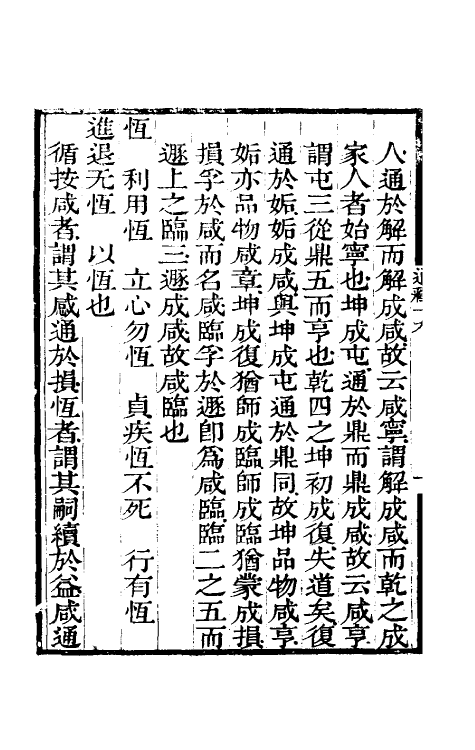 人通於解而解成咸故云咸寧謂解成咸而乾之成
家人者始寧也坤成屯通於鼎而鼎成咸故云咸亨
謂屯三從鼎五而亨也乾四之坤初成復失道矣復
通於姤姤成咸與坤成屯通於鼎同故坤品物咸亨
姤亦品物咸章坤成復猶師成臨師成臨猶蒙成損
損孚於咸而名咸臨孚於遯卽爲咸臨臨二之五而
遯上之臨三遯成咸故咸臨也
恆　利用恆　立心勿恆　貞疾恆不死　行有恆
進退无恆　以恆也
循按咸者謂其感通於損恆者謂其嗣續於益咸通
通釋十九